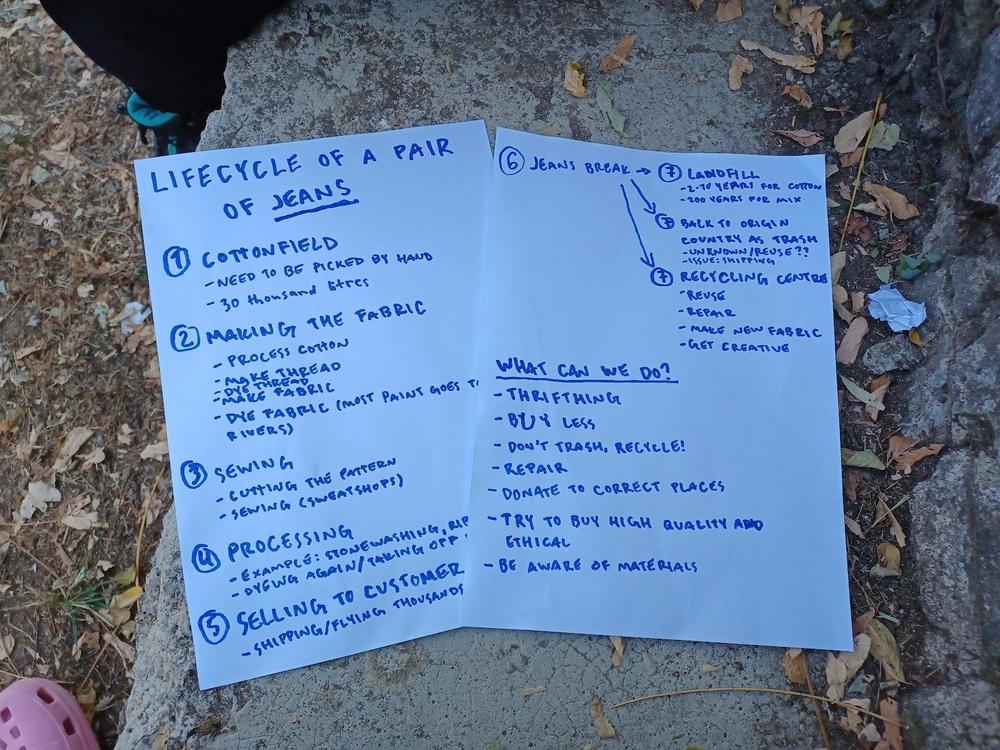 LIFECYCLE OF A PAIR
OF JEANS
1 COTTONFIELD
- NEED TO BE PICKED BY HAND
- 30 thousand litres
2 MAKING THE FABRIC
- PROCESS COTTON
- MAKE THREAD
- DYE THREAD
- MAKE FABRIC
- DYE FABRIC (MOST PAINT GOES T
RIVERS)
3 SEWING
- CUTTING THE PATTERN
- SEWING (SWEATSHOPS)
4 PROCESSING
- EXAMPLE: STONEWASHING, RIP
- DYEING AGAIN/TAKING OFF
5 SELLING TO CUSTOMER
- SHIPPING/FLYING THOUSANDS
6 JEANS BREAK → 7 LANDFILL
- 2-10 YEARS FOR COTTON
- 200 YEARS FOR MIX
7 BACK TO ORIGIN
COUNTRY AS TRASH
- UNKNOWN/REUSE??
- ISSUE: SHIPPING
7 RECYCLING CENTRE
- REUSE
- REPAIR
- MAKE NEW FABRIC
- GET CREATIVE
WHAT CAN WE DO?
- THRIFTHING
- BUY LESS
- DON'T TRASH, RECYCLE!
- REPAIR
- DONATE TO CORRECT PLACES
- TRY TO BUY HIGH QUALITY AND
ETHICAL
- BE AWARE OF MATERIALS